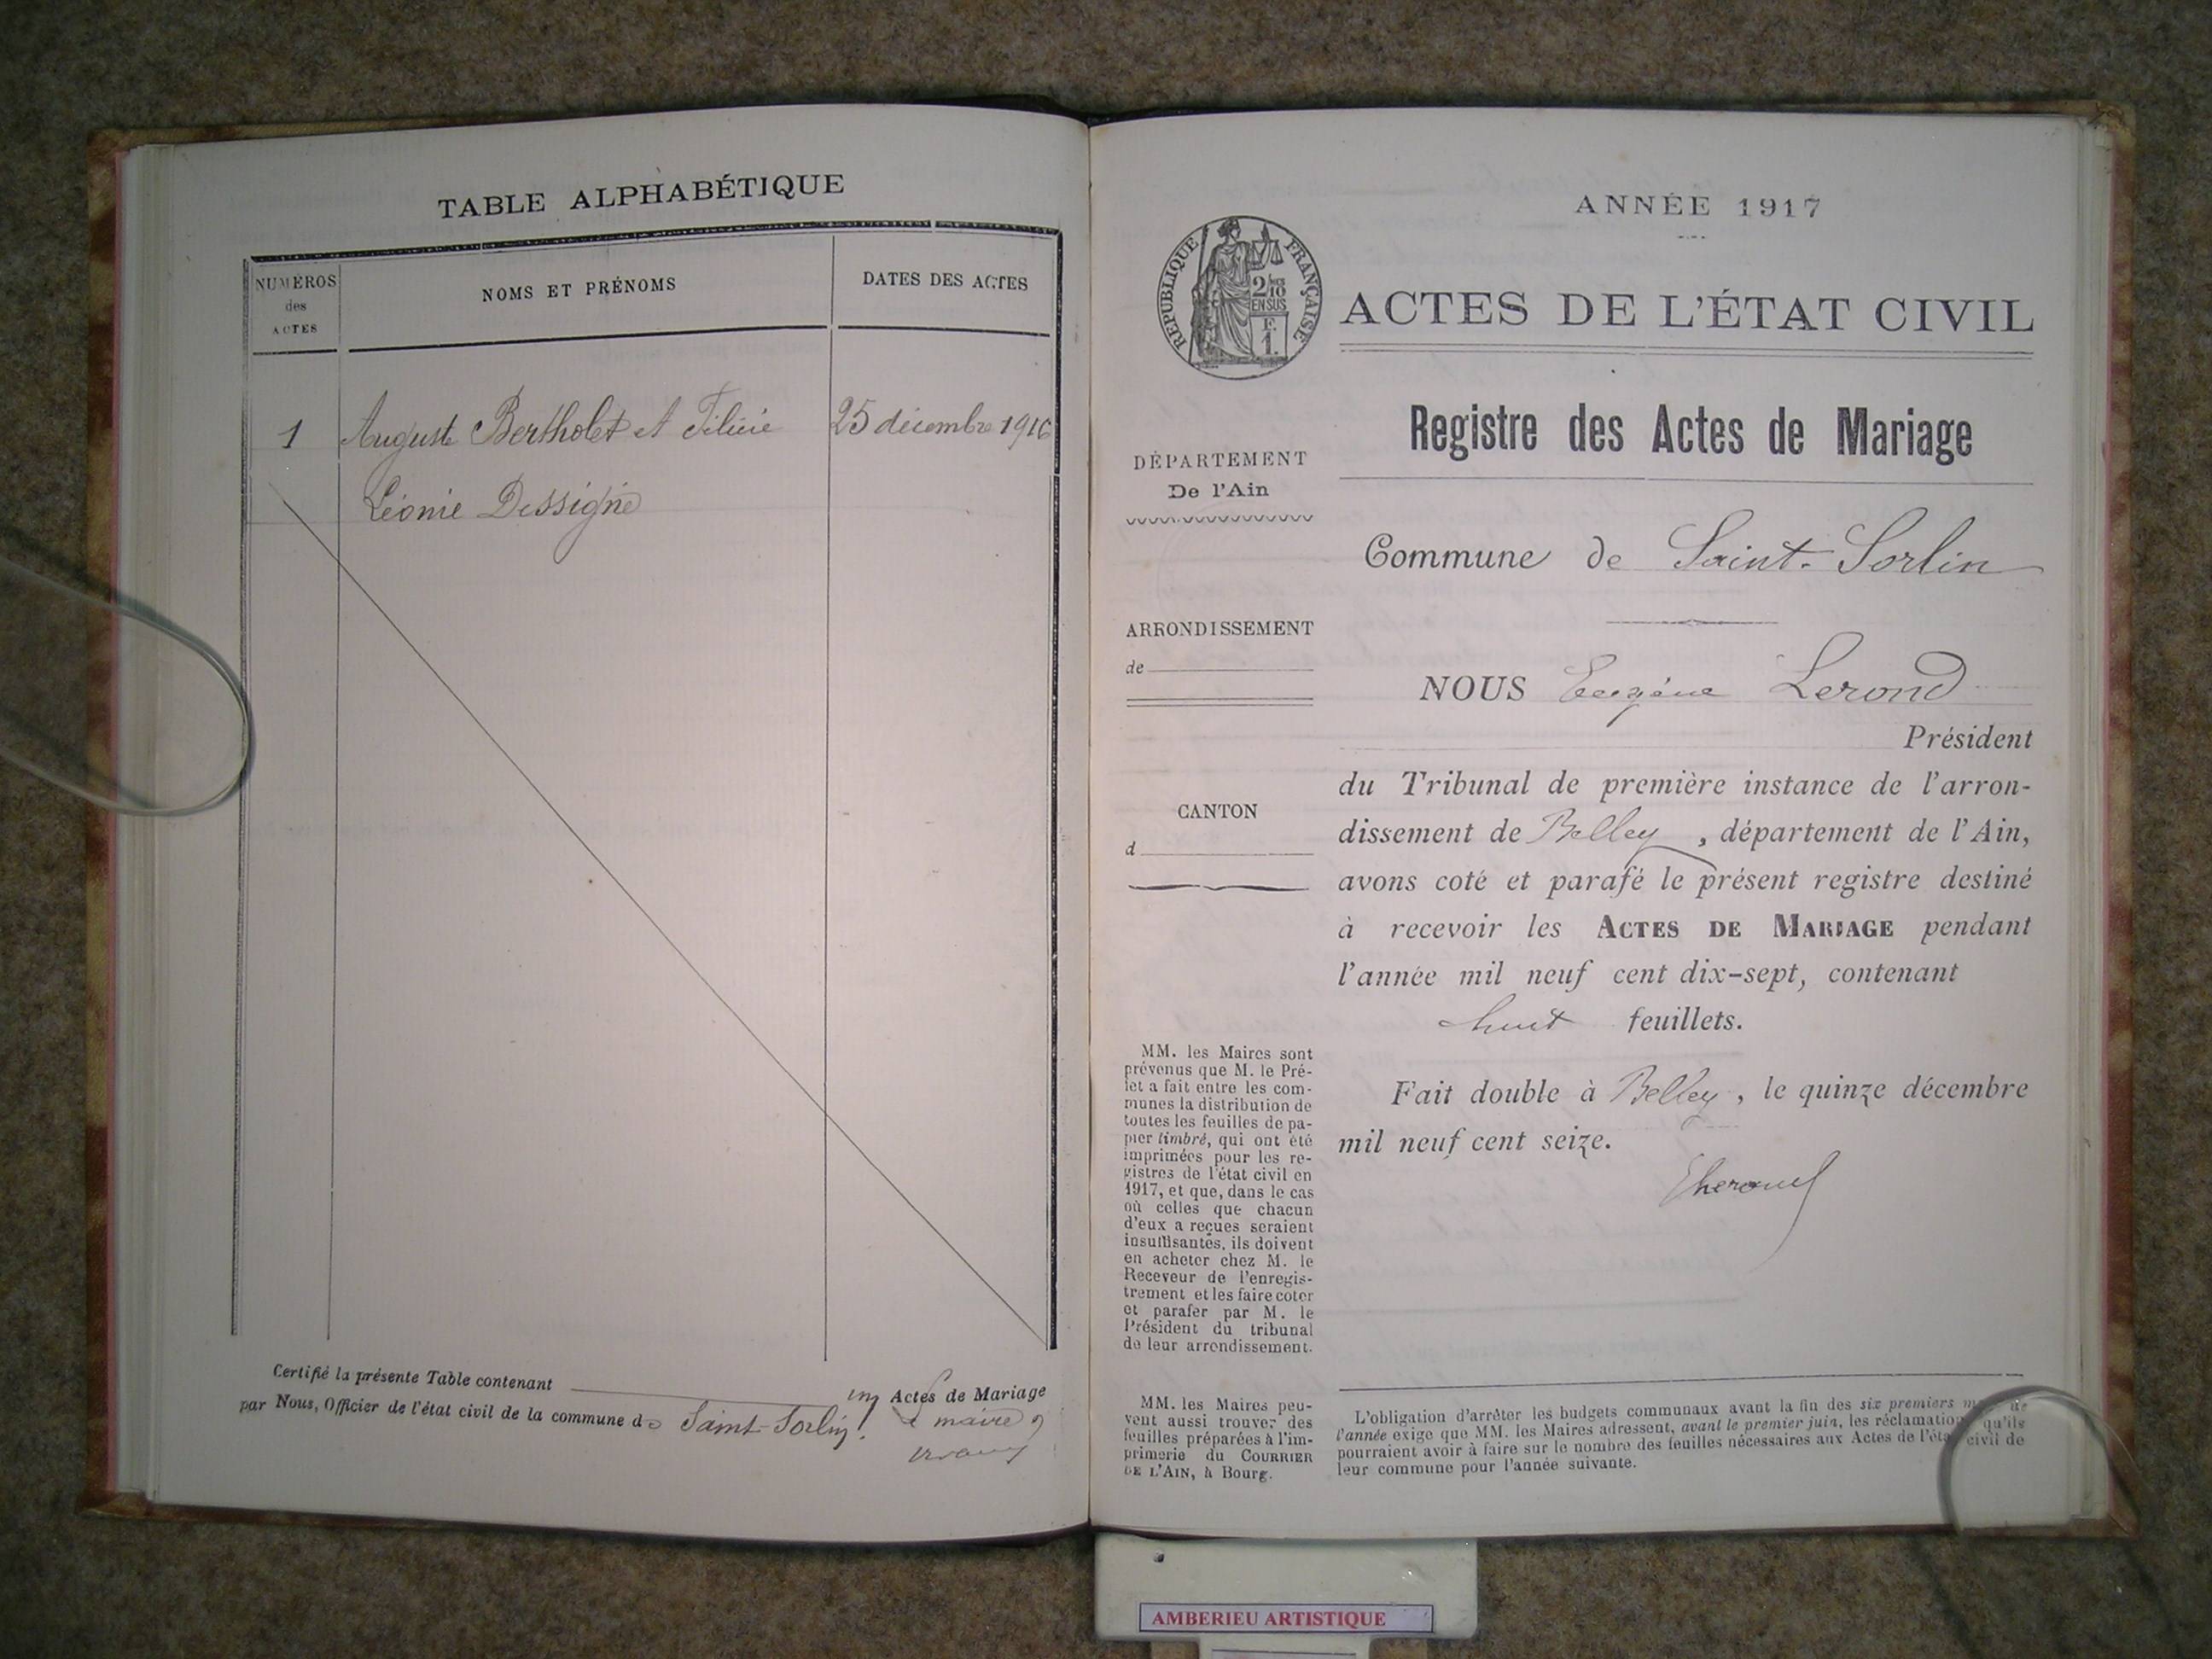 TABLE ALPHABÉTIQUE
NUMÉROS
des
ACTES
NOMS ET PRÉNOMS
DATES DES ACTES
1
Auguste Bertholet et Félicie
25 décembre 1916
Léonie Dessigne
Certifié la présente Table contenant un Actes de Mariage
par Nous, Officier de l'état civil de la commune de Saint-Sorlin.
Le maire
ANNÉE 1917
RÉPUBLIQUE FRANÇAISE
2/10
EN SUS
F.
1.
ACTES DE L'ÉTAT CIVIL
Registre des Actes de Mariage
DÉPARTEMENT
De l'Ain
Commune de Saint-Sorlin
ARRONDISSEMENT
de
NOUS Eugène Lerond
Président
du Tribunal de première instance de l'arron-
dissement de Belley, département de l'Ain,
avons coté et parafé le présent registre destiné
à recevoir les ACTES DE MARIAGE pendant
l'année mil neuf cent dix-sept, contenant
huit feuillets.
Fait double à Belley, le quinze décembre
mil neuf cent seize.
CANTON
d
MM. les Maires sont
prévenus que M. le Pré-
fet a fait entre les com-
munes la distribution de
toutes les feuilles de pa-
pier timbré, qui ont été
imprimées pour les re-
gistres de l'état civil en
1917, et que, dans le cas
où celles que chacun
d'eux a reçues seraient
insuffisantes, ils doivent
en acheter chez M. le
Receveur de l'enregis-
trement et les faire coter
et parafer par M. le
Président du tribunal
de leur arrondissement.
MM. les Maires peu-
vent aussi trouver des
feuilles préparées à l'im-
primerie du COURRIER
DE L'AIN, à Bourg.
L'obligation d'arrêter les budgets communaux avant la fin des six premiers mois de
l'année exige que MM. les Maires adressent, avant le premier juin, les réclamations qu'ils
pourraient avoir à faire sur le nombre des feuilles nécessaires aux Actes de l'état civil de
leur commune pour l'année suivante.
AMBERIEU ARTISTIQUE